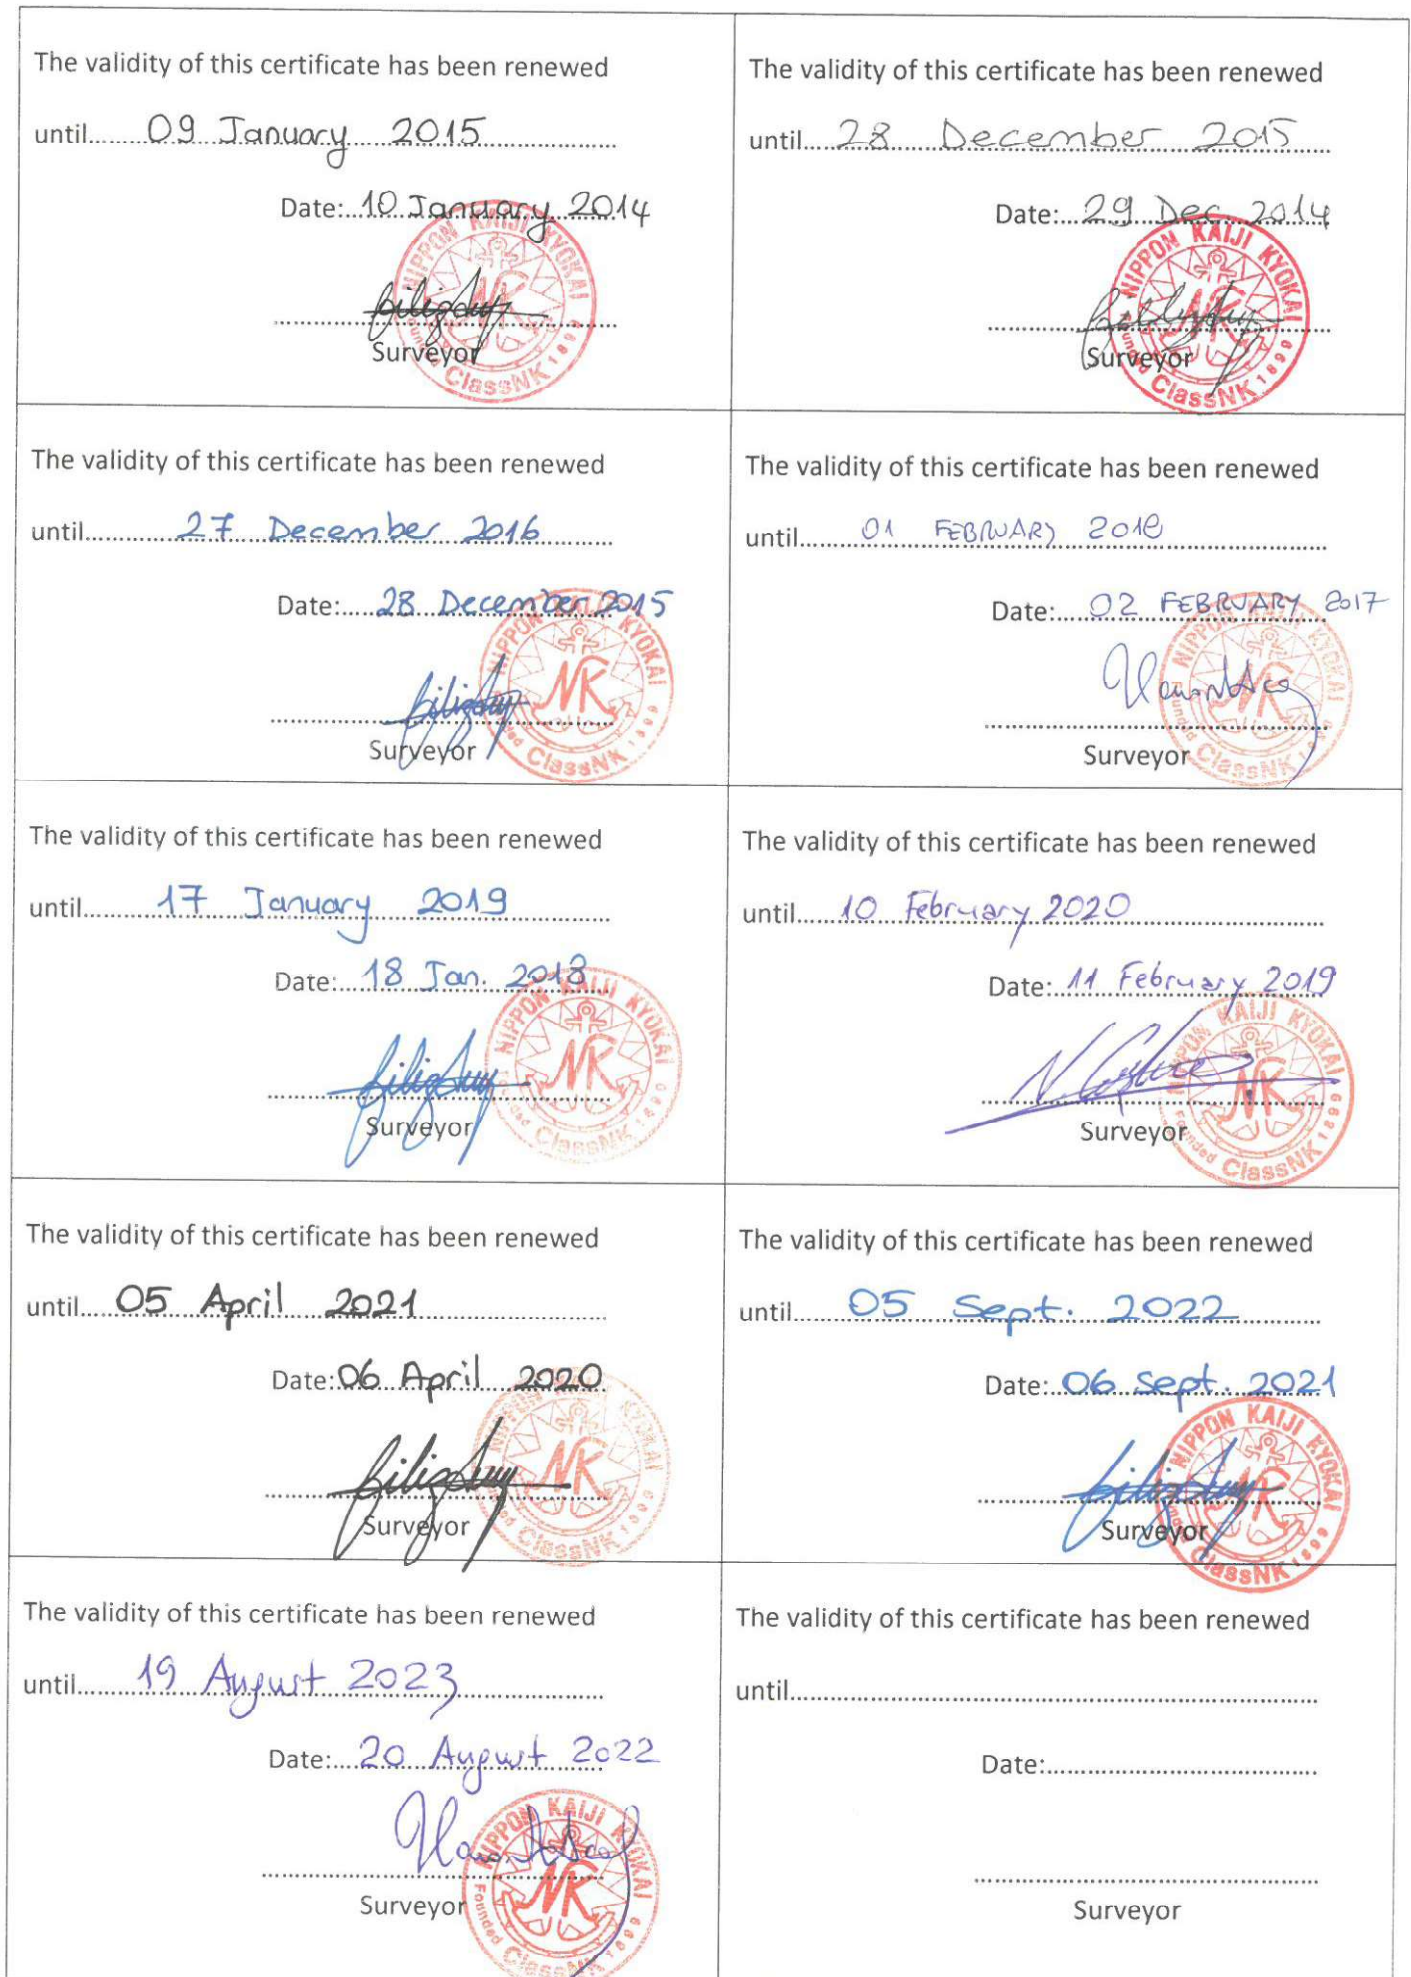 The validity of this certificate has been renewed
until 09 January 2015
Date: 10 January 2014
NIPPON KAIJI KYOKAI
NK
Founded ClassNK 1899
Surveyor
The validity of this certificate has been renewed
until 28 December 2015
Date: 29 Dec 2014
NIPPON KAIJI KYOKAI
NK
Founded ClassNK 1899
Surveyor
The validity of this certificate has been renewed
until 27 December 2016
Date: 28 December 2015
NIPPON KAIJI KYOKAI
NK
Founded ClassNK 1899
Surveyor
The validity of this certificate has been renewed
until 01 FEBRUARY 2018
Date: 02 FEBRUARY 2017
NIPPON KAIJI KYOKAI
NK
Founded ClassNK 1899
Surveyor
The validity of this certificate has been renewed
until 17 January 2019
Date: 18 Jan. 2018
NIPPON KAIJI KYOKAI
NK
Founded ClassNK 1899
Surveyor
The validity of this certificate has been renewed
until 10 February 2020
Date: 11 February 2019
NIPPON KAIJI KYOKAI
NK
Founded ClassNK 1899
Surveyor
The validity of this certificate has been renewed
until 05 April 2021
Date: 06 April 2020
NIPPON KAIJI KYOKAI
NK
Founded ClassNK 1899
Surveyor
The validity of this certificate has been renewed
until 05 Sept. 2022
Date: 06 Sept. 2021
NIPPON KAIJI KYOKAI
NK
Founded ClassNK 1899
Surveyor
The validity of this certificate has been renewed
until 19 August 2023
Date: 20 August 2022
NIPPON KAIJI KYOKAI
NK
Founded ClassNK 1899
Surveyor
The validity of this certificate has been renewed
until
Date:
Surveyor